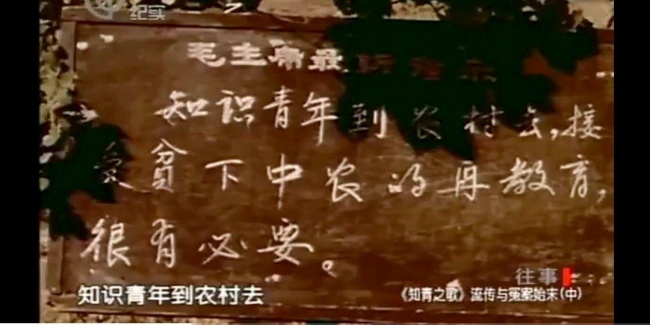 纪实
毛主席最新指示
知识青年到农村去,接
受贫下中农的再教育,
很有必要。
往事
知识青年到农村去
《知青之歌》流传与冤案始末(中)